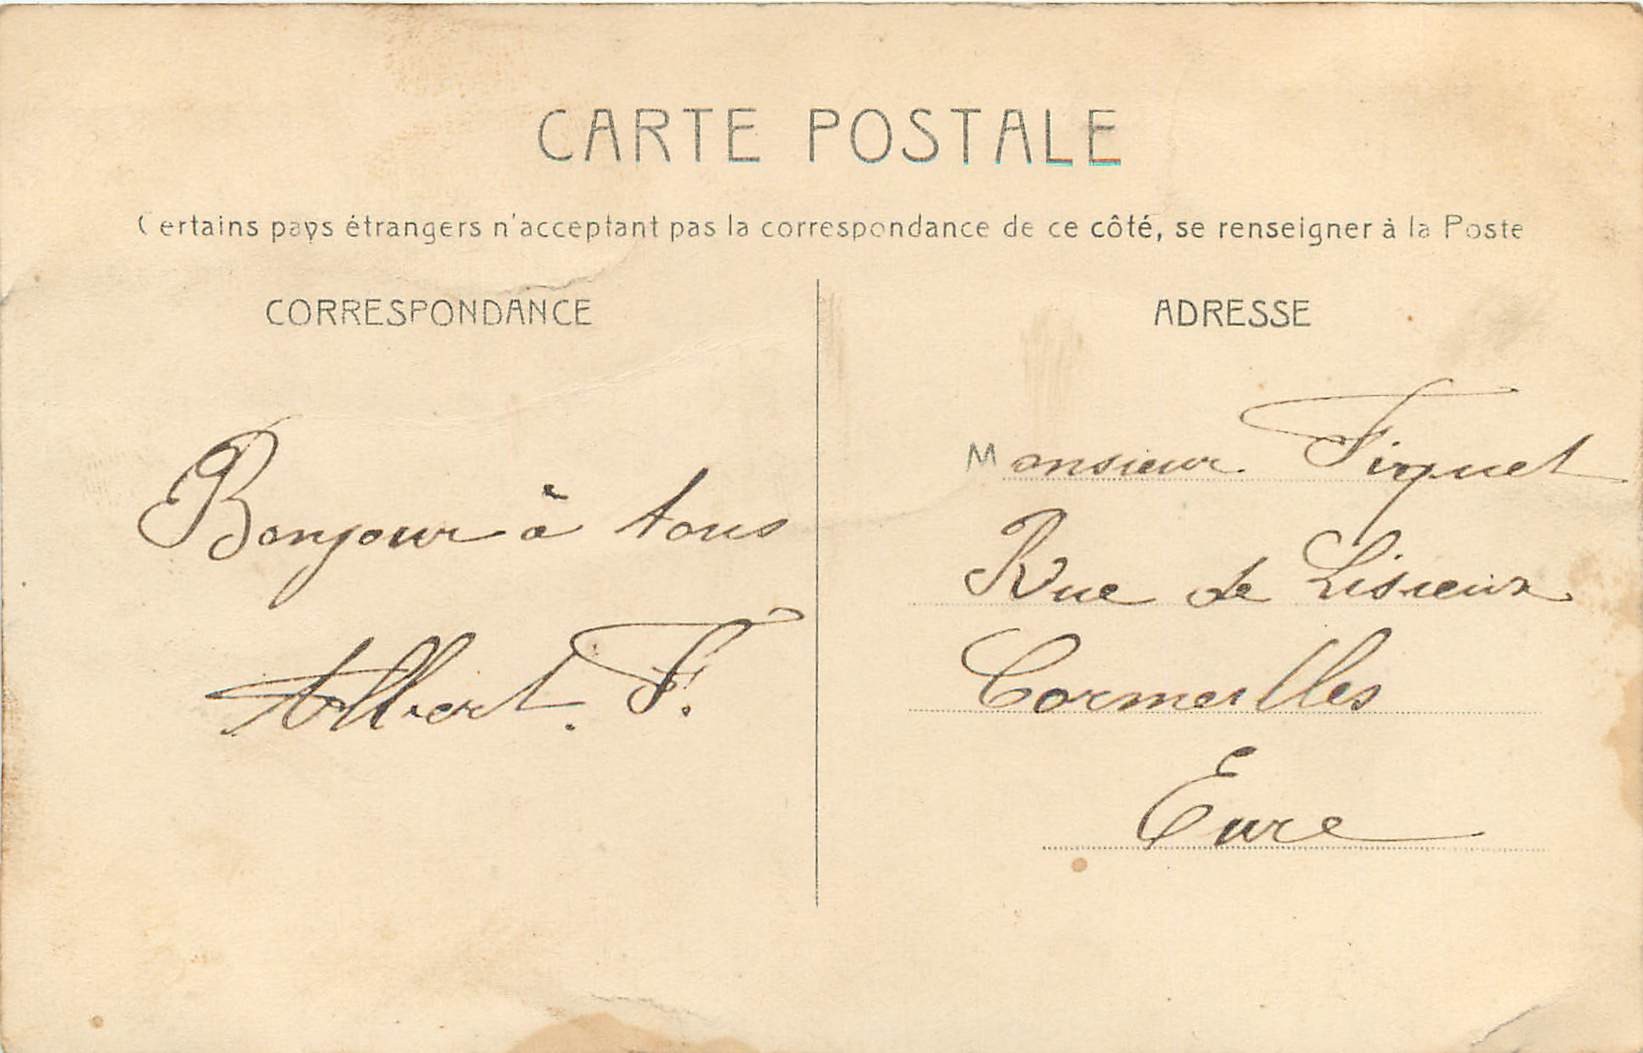 CARTE POSTALE
Certains pays étrangers n'acceptant pas la correspondance de ce côté, se renseigner à la Poste
CORRESPONDANCE
Bonjour à tous
Albert. F.
ADRESSE
Monsieur Firquet
Rue de Lisieux
Cormeilles
Eure